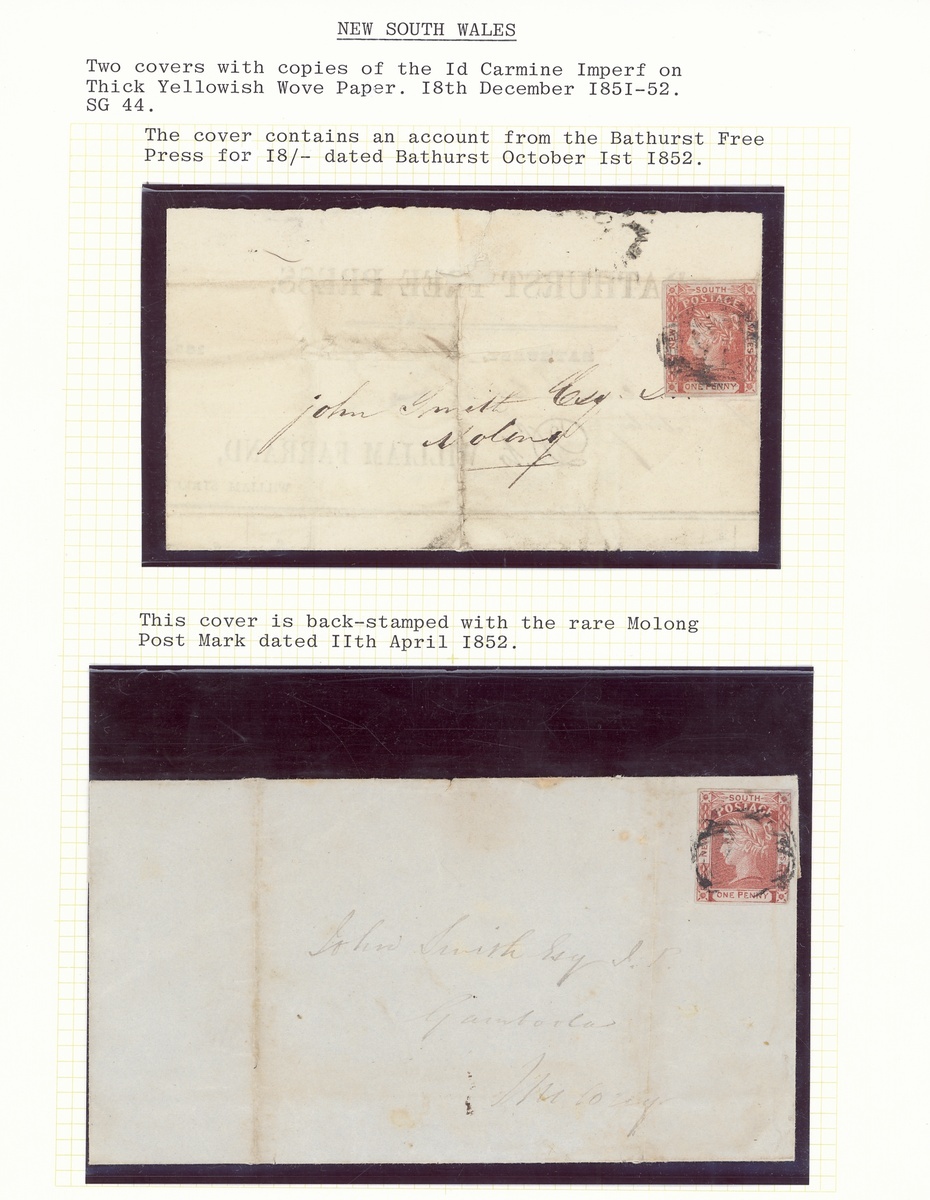 NEW SOUTH WALES
Two covers with copies of the Id Carmine Imperf on
Thick Yellowish Wove Paper. I8th December I85I-52.
SG 44.
The cover contains an account from the Bathurst Free
Press for I8/- dated Bathurst October Ist I852.
BATHURST FREE PRESS.
SOUTH
POSTAGE
ONE PENNY
John Smith Esq.
Molong
WILLIAM FARRAND,
WILLIAM STREET
This cover is back-stamped with the rare Molong
Post Mark dated IIth April I852.
SOUTH
POSTAGE
ONE PENNY
John Smith Esq J.P.
Gamboola